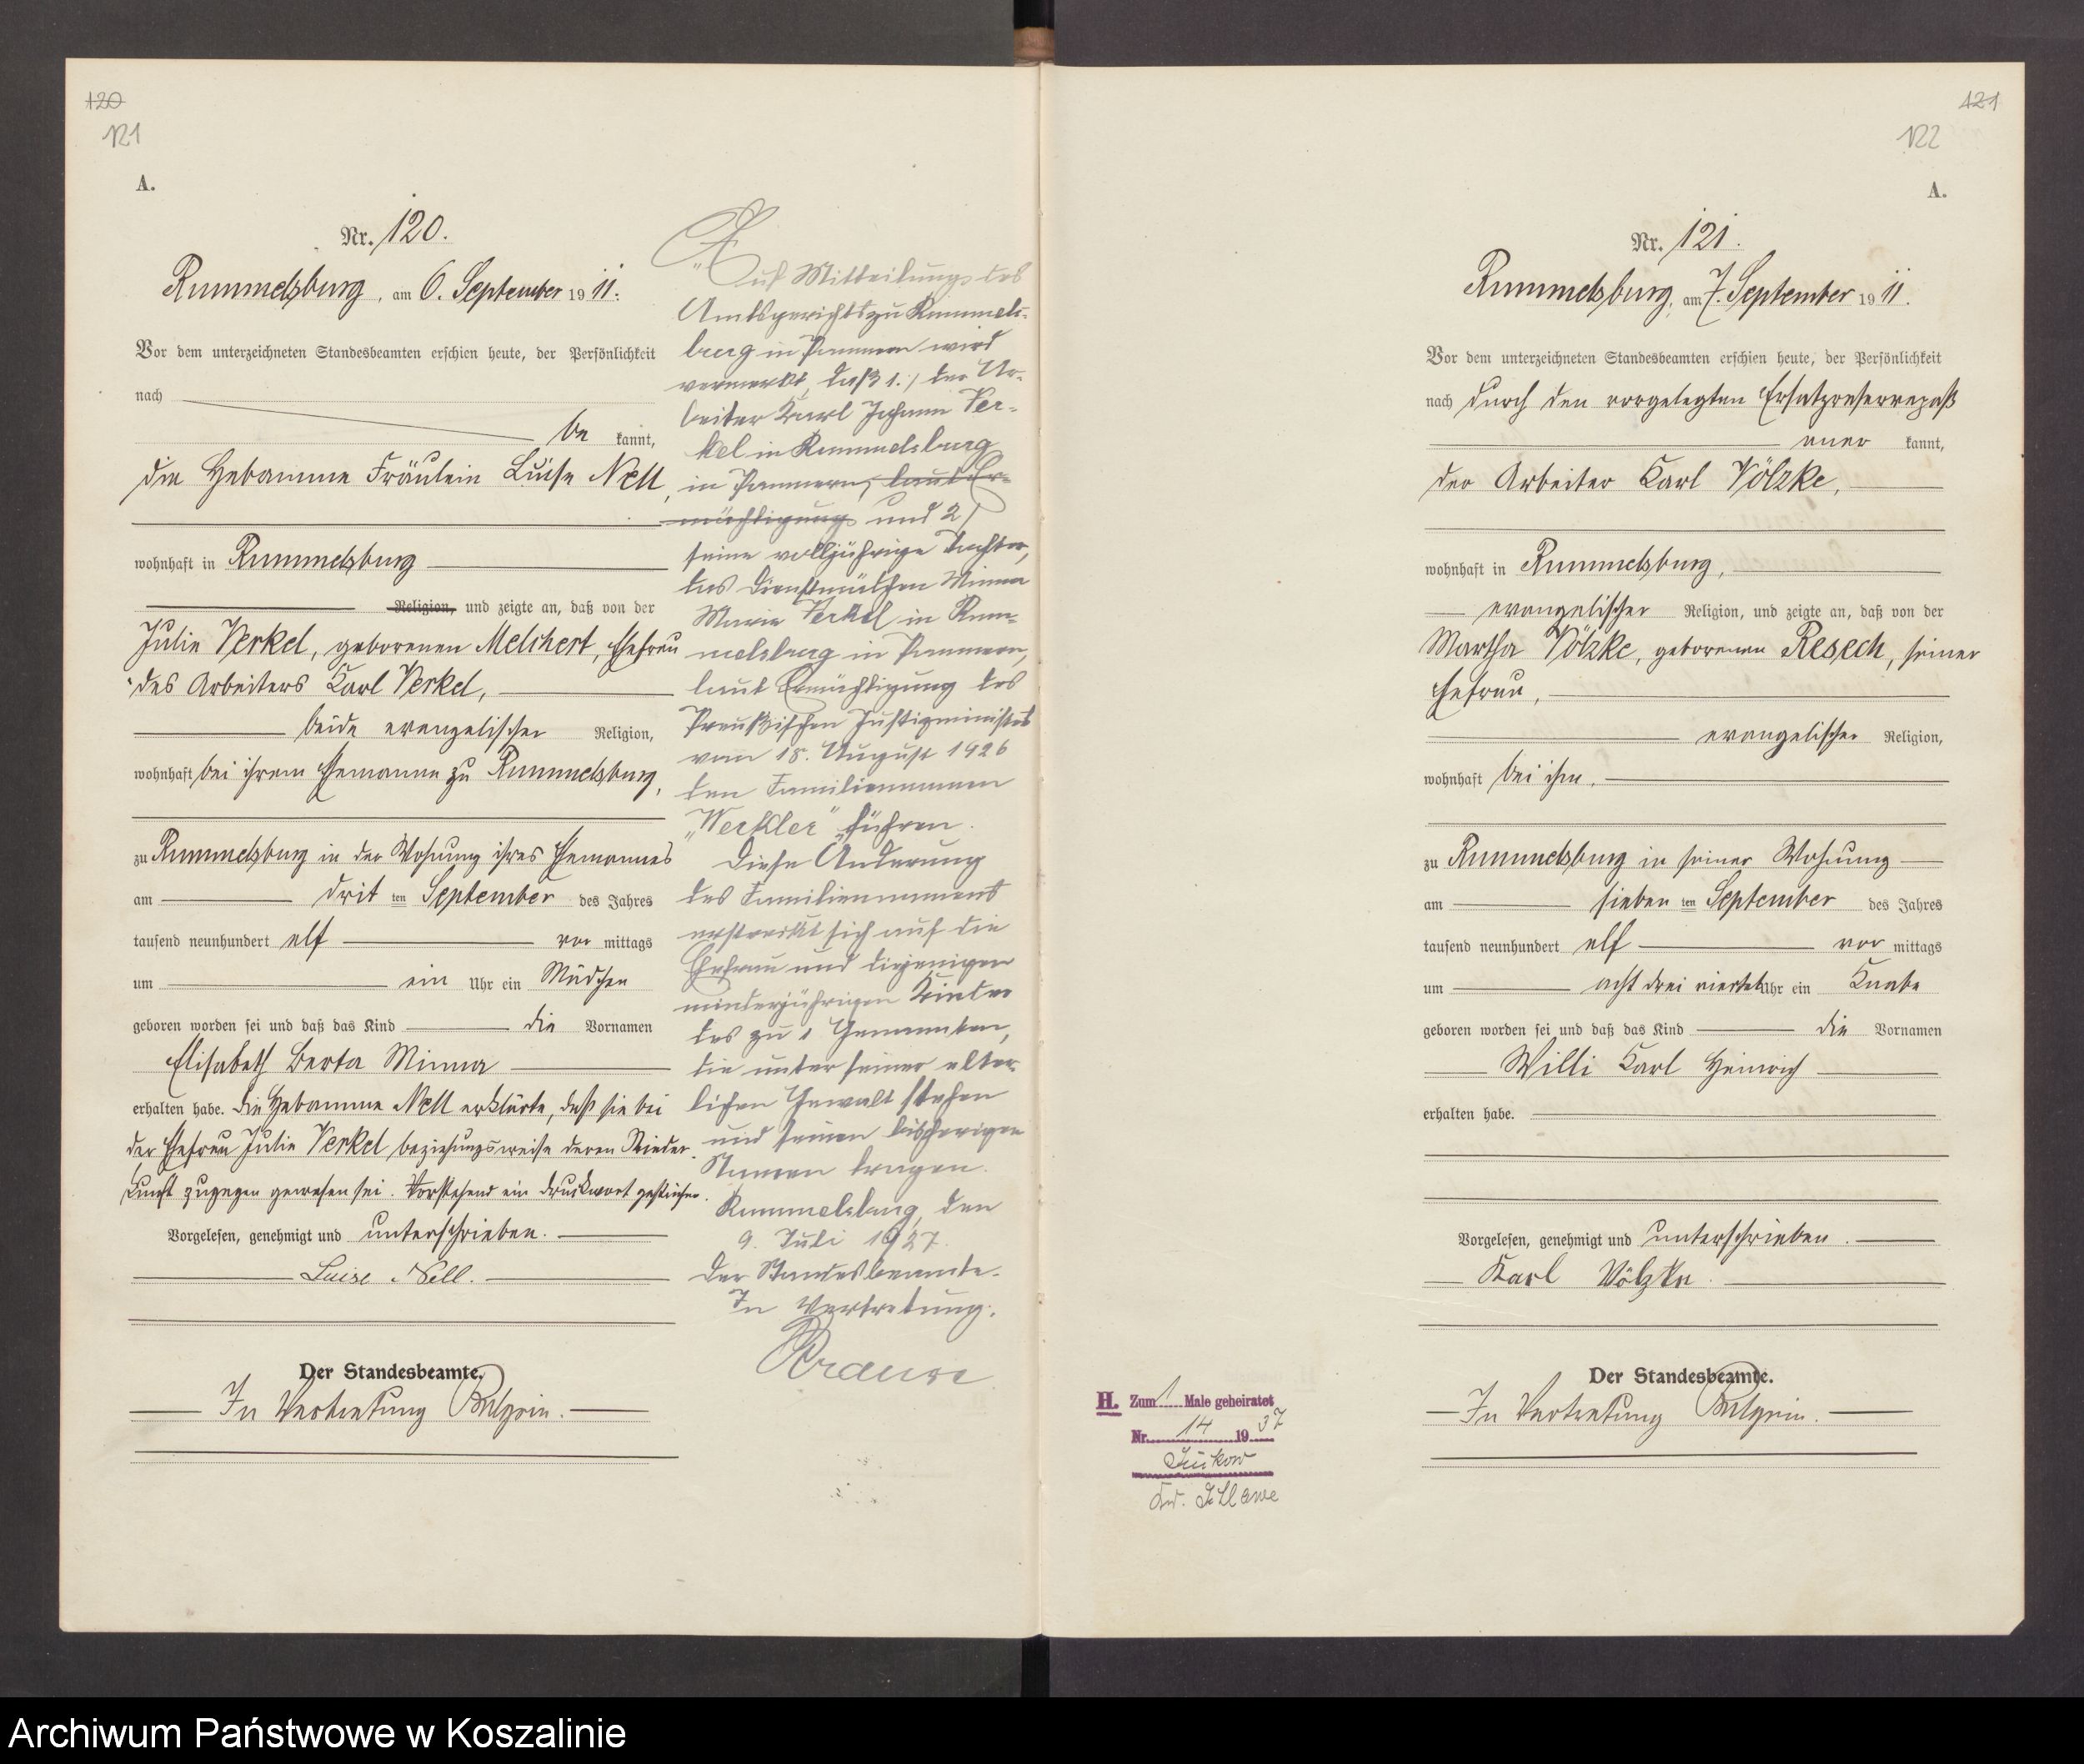 120
121
A.
Nr. 120.
Rummelsburg, am 6. September 1911.
Vor dem unterzeichneten Standesbeamten erschien heute, der Persönlichkeit
nach
be kannt,
die Hebamme Fräulein Luise Nell,
wohnhaft in Rummelsburg
Religion, und zeigte an, daß von der
Julie Verkel, geborenen Melchert, Ehefrau
des Arbeiters Karl Verkel,
beide evangelischer Religion,
wohnhaft bei ihrem Ehemanne zu Rummelsburg,
zu Rummelsburg in der Wohnung ihres Ehemannes
am drit ten September des Jahres
tausend neunhundert elf vor mittags
um ein Uhr ein Mädchen
geboren worden sei und daß das Kind die Vornamen
Elisabeth Berta Minna
erhalten habe. Die Hebamme Nell erklärte, daß sie bei
der Ehefrau Julie Verkel beziehungsweise deren Nieder-
kunft zugegen gewesen sei. Vorstehend ein Druckwort gestrichen.
Vorgelesen, genehmigt und unterschrieben.
Luise Nell.
Der Standesbeamte.
In Vertretung
Auf Mitteilung des
Amtsgerichts zu Rummels-
burg in Pommern wird
vermerkt, daß 1.) der Ar-
beiter Karl Johann Ver-
kel in Rummelsburg
in Pommern, laut Er-
mächtigung und 2)
seine volljährige Tochter,
das Dienstmädchen Minna
Marie Verkel in Rum-
melsburg in Pommern,
laut Ermächtigung des
Preußischen Justizministers
vom 18. August 1926
den Familiennamen
„Werkler" führen.
Diese Änderung
des Familiennamens
erstreckt sich auf die
Ehefrau und diejenigen
minderjährigen Kinder
des zu 1 Genannten,
die unter seiner elter-
lichen Gewalt stehen
und seinen bisherigen
Namen tragen.
Rummelsburg, den
9. Juli 1927.
Der Standesbeamte.
In Vertretung:
Krause
121
122
A.
Nr. 121.
Rummelsburg, am 7. September 1911.
Vor dem unterzeichneten Standesbeamten erschien heute, der Persönlichkeit
nach durch den vorgelegten Ersatzreservepaß
aner kannt,
der Arbeiter Karl Völzke,
wohnhaft in Rummelsburg,
evangelischer Religion, und zeigte an, daß von der
Martha Völzke, geborenen Resech, seiner
Ehefrau,
evangelischer Religion,
wohnhaft bei ihm,
zu Rummelsburg in seiner Wohnung
am sieben ten September des Jahres
tausend neunhundert elf vor mittags
um acht drei viertel Uhr ein Knabe
geboren worden sei und daß das Kind die Vornamen
Willi Karl Heinrich
erhalten habe.
Vorgelesen, genehmigt und unterschrieben.
Karl Völzke.
Der Standesbeamte.
In Vertretung
H. Zum 1 Male geheiratet
Nr. 14 1937
Suckow
Krs. Schlawe
Archiwum Państwowe w Koszalinie